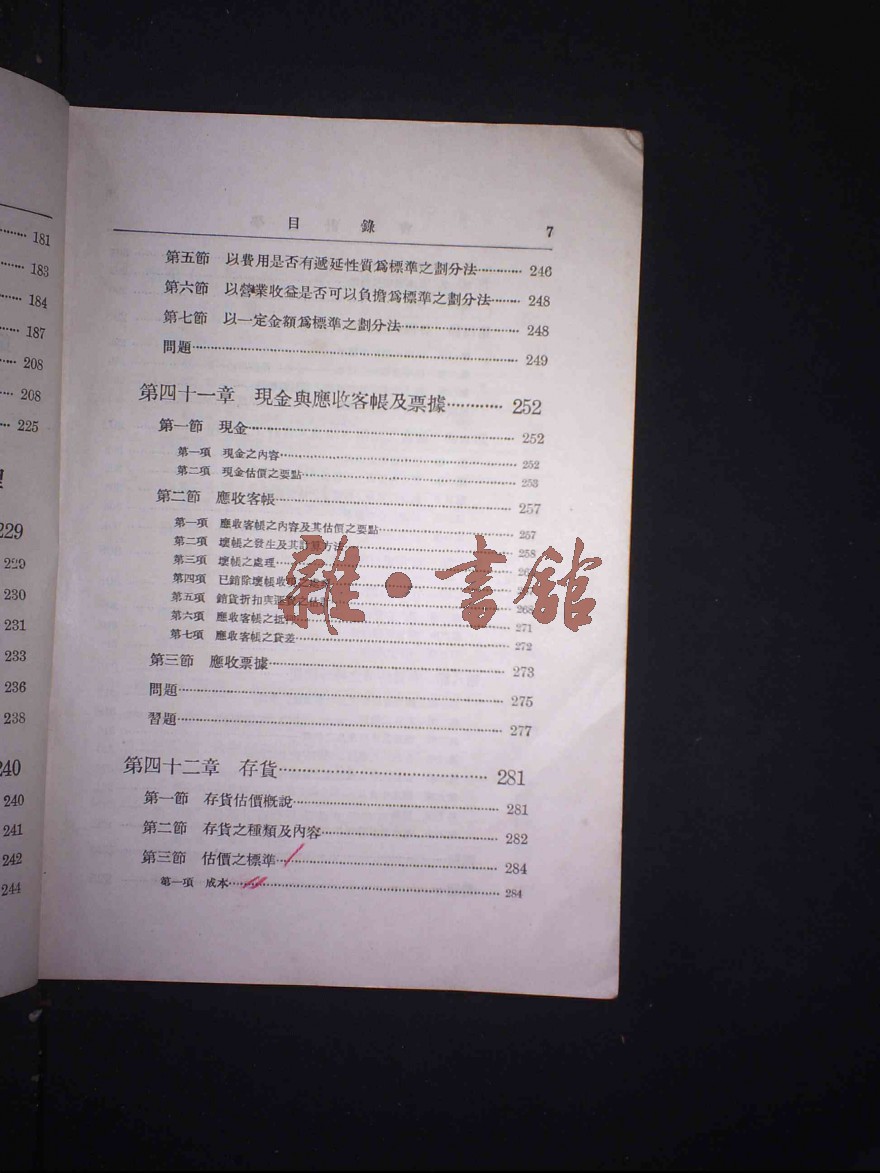 181
183
184
187
208
208
225
229
229
230
231
233
236
238
240
240
241
242
244
目 錄 7
第五節 以費用是否有遞延性質爲標準之劃分法………… 246
第六節 以營業收益是否可以負擔爲標準之劃分法……… 248
第七節 以一定金額爲標準之劃分法……………………… 248
問題………………………………………………………… 249
第四十一章 現金與應收客帳及票據………… 252
第一節 現金………………………………………………… 252
第一項 現金之內容………………………………………… 252
第二項 現金估價之要點…………………………………… 253
第二節 應收客帳…………………………………………… 257
第一項 應收客帳之內容及其估價之要點………………… 257
第二項 壞帳之發生及其計算方法………………………… 258
第三項 壞帳之處理…………………………………………
第四項 已銷除壞帳收
第五項 銷貨折扣與 之估 268
第六項 應收客帳之抵 271
第七項 應收客帳之貸差…………………………………… 272
第三節 應收票據…………………………………………… 273
問題………………………………………………………… 275
習題………………………………………………………… 277
第四十二章 存貨……………………………… 281
第一節 存貨估價概說……………………………………… 281
第二節 存貨之種類及內容………………………………… 282
第三節 估價之標準………………………………………… 284
第一項 成本………………………………………………… 284
雜·書館